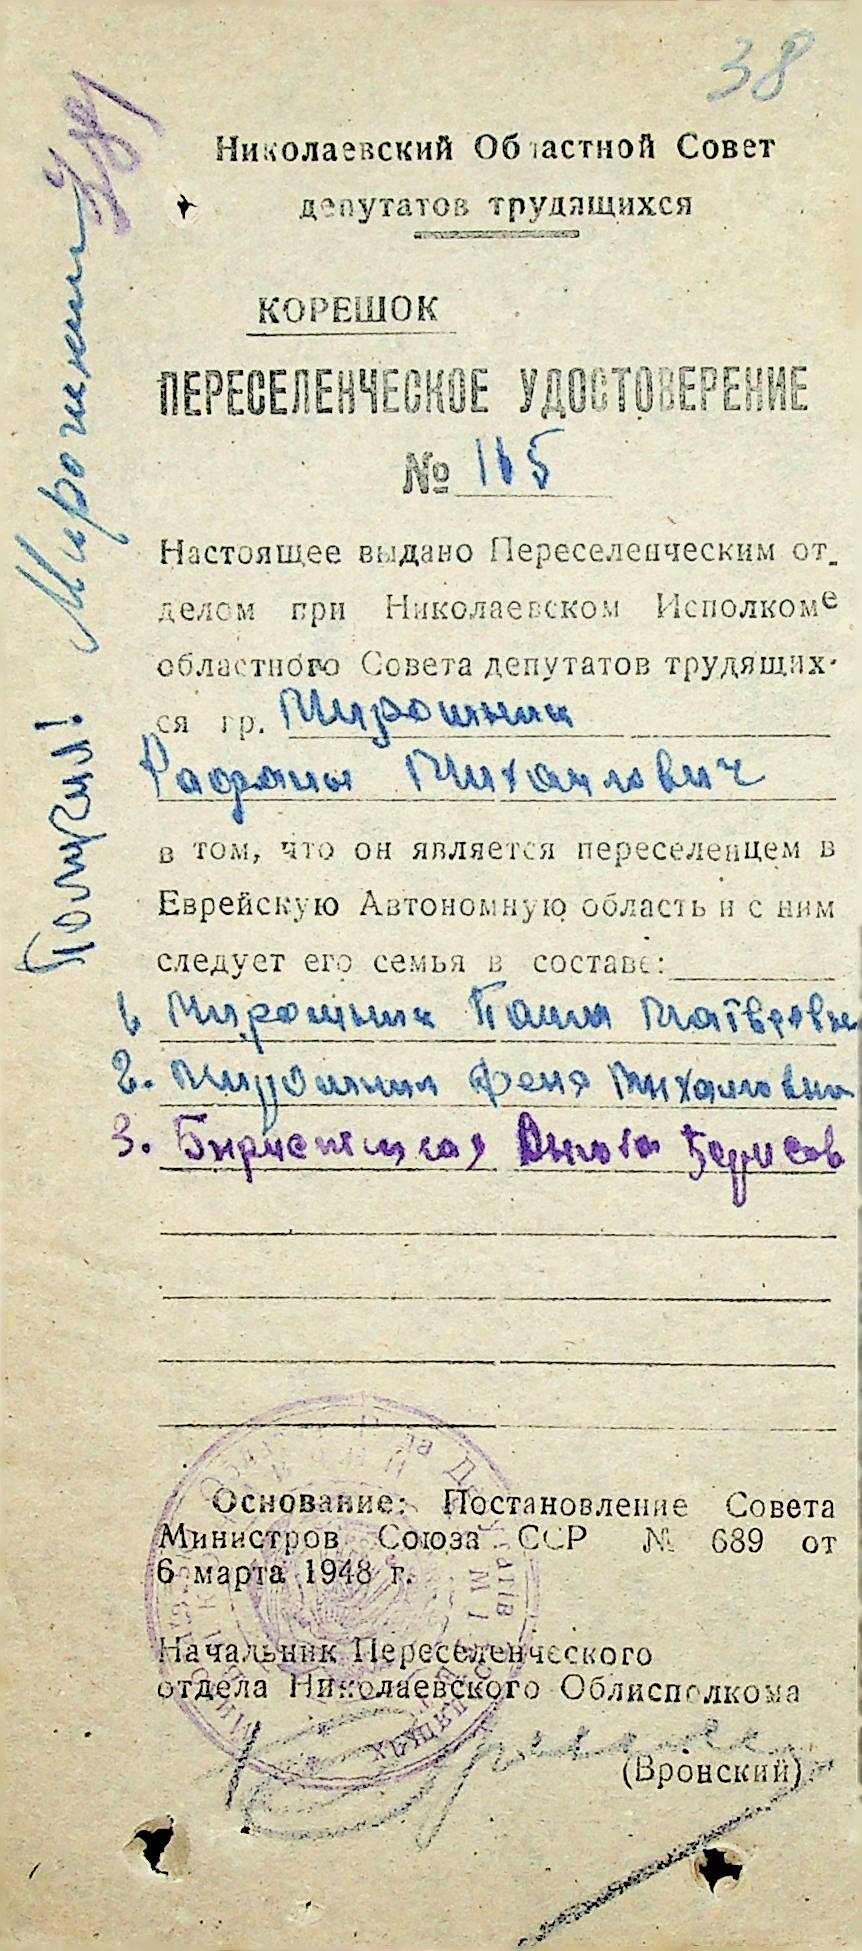 38
Николаевский Областной Совет
депутатов трудящихся
КОРЕШОК
ПЕРЕСЕЛЕНЧЕСКОЕ УДОСТОВЕРЕНИЕ
№ 165
Настоящее выдано Переселенческим от-
делом при Николаевском Исполкоме
областного Совета депутатов трудящих-
ся гр. Мирошник
Михайлович
в том, что он является переселенцем в
Еврейскую Автономную область и с ним
следует его семья в составе:
1. Мирошник Матвеевн
2. Мирошник Феня Михайловна
3. Борисов
Основание: Постановление Совета
Министров Союза ССР № 689 от
6 марта 1948 г.
Начальник Переселенческого
отдела Николаевского Облисполкома
(Вронский)
Получил! Мирошник